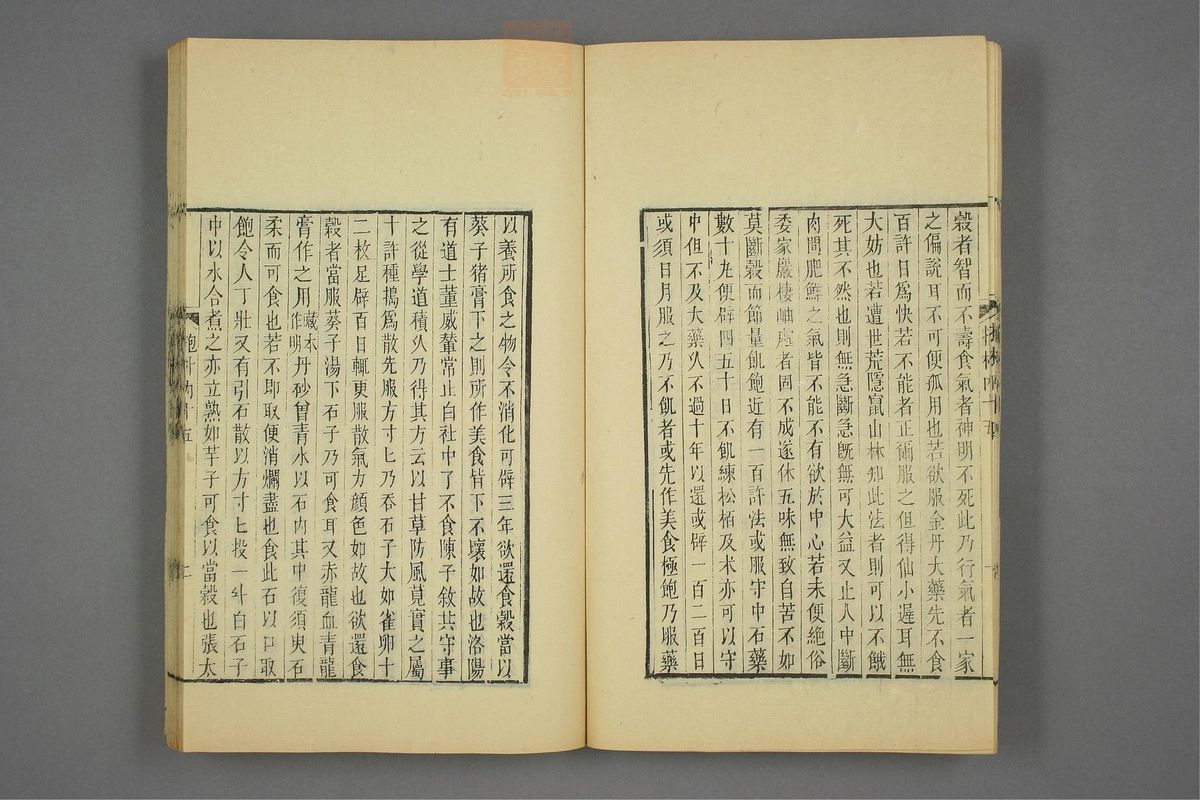 穀者智而不壽食氣者神明不死此乃行氣者一家
之偏說耳不可便孤用也若欲服金丹大藥先不食
百許日爲快若不能者正爾服之但得仙小遲耳無
大妨也若遭世荒隱竄山林知此法者則可以不餓
死其不然也則無急斷急旣無可大益又止人中斷
肉聞肥鮮之氣皆不能不有欲於中心若未便絶俗
委家巖棲岫處者固不成遂休五味無致自苦不如
莫斷穀而節量飢飽近有一百許法或服守中石藥
數十丸便辟四五十日不飢練松栢及朮亦可以守
中但不及大藥久不過十年以還或辟一百二百日
或須日日服之乃不飢者或先作美食極飽乃服藥
以養所食之物令不消化可辟三年欲還食穀當以
葵子猪膏下之則所作美食皆下不壞如故也洛陽
有道士董威輦常止白社中了不食陳子敘共守事
之從學道積久乃得其方云以甘草防風莧實之屬
十許種擣爲散先服方寸匕乃吞石子大如雀卵十
二枚足辟百日輒更服散氣力顏色如故也欲還食
穀者當服葵子湯下石子乃可食耳又赤龍血青龍
膏作之用藏本作明丹砂曾青水以石內其中復須臾石
柔而可食也若不即取便消爛盡也食此石以口取
飽令人丁壯又有引石散以方寸匕投一斗白石子
中以水合煮之亦立熟如芋子可食以當穀也張太
抱朴內十五
二